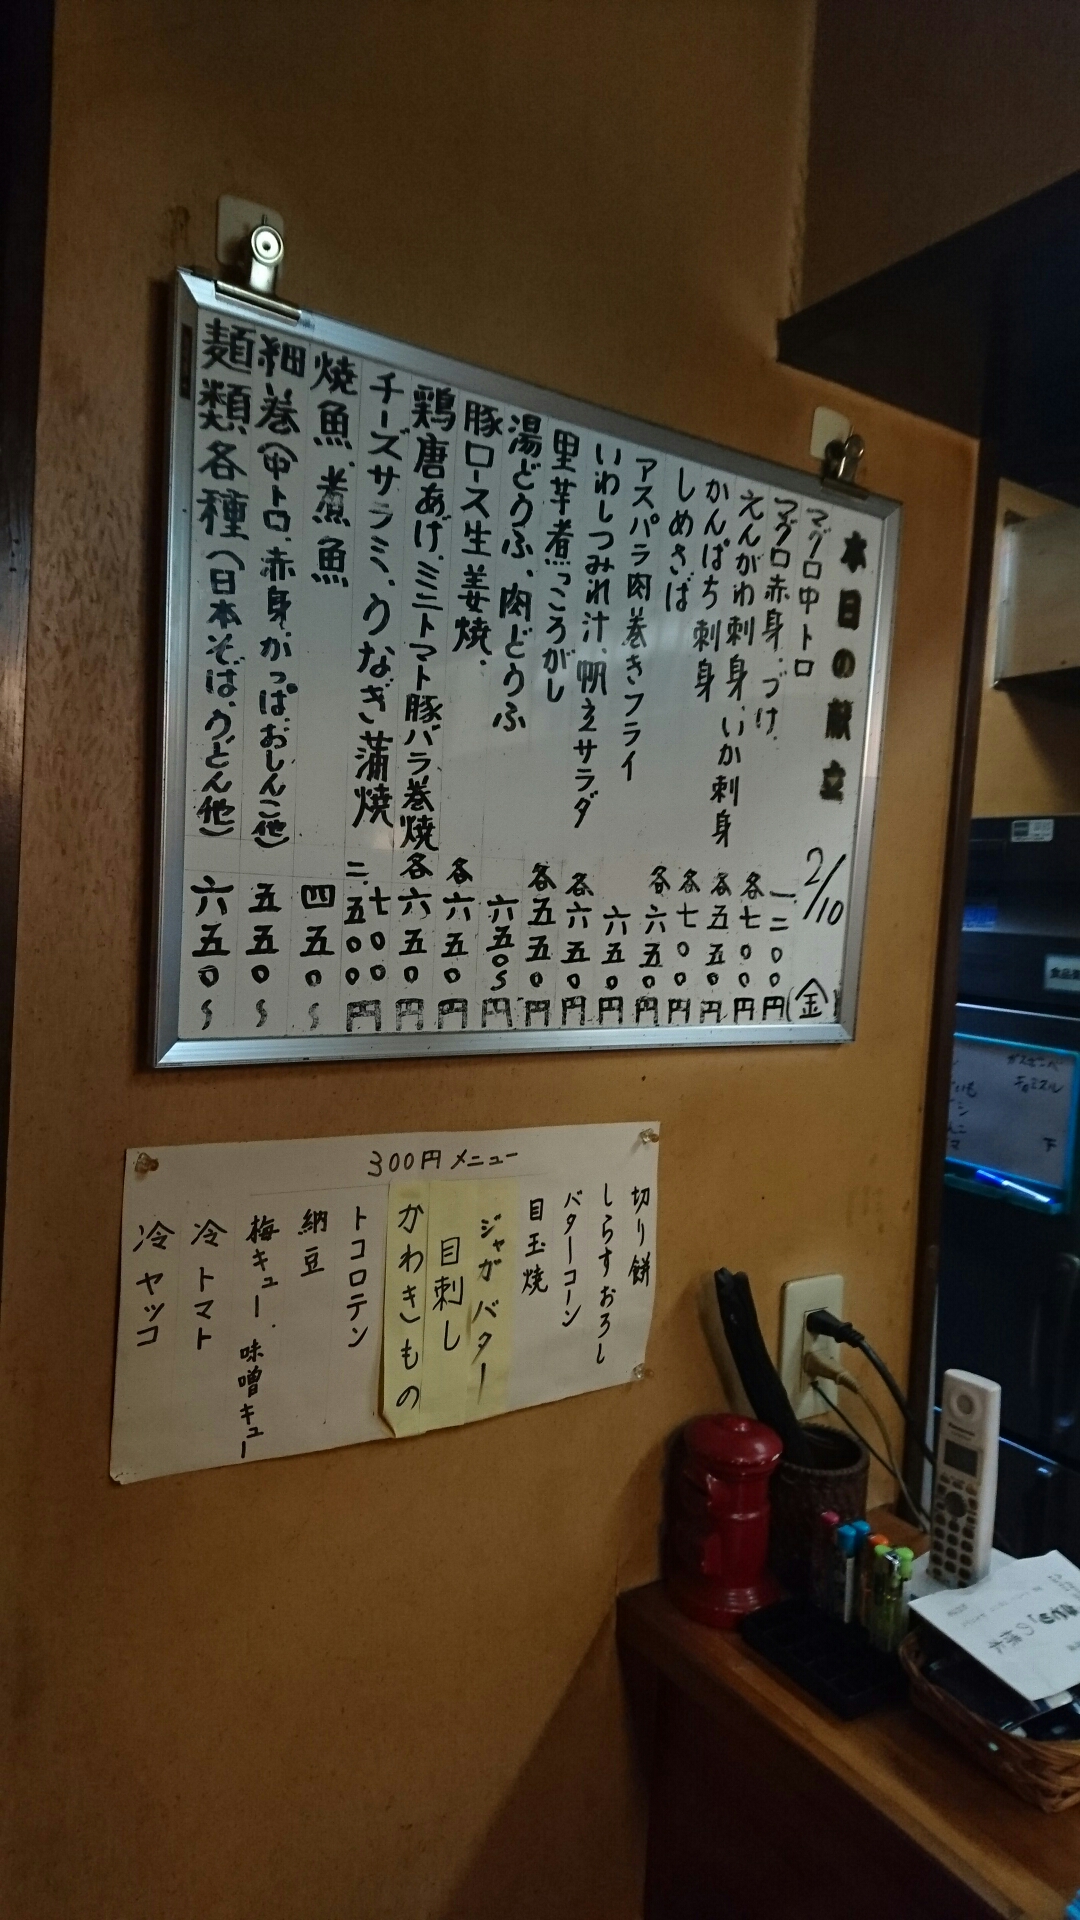 本日の献立 2/10(金)
マグロ中トロ 一二〇〇円
マグロ赤身、づけ 各七〇〇円
えんがわ刺身、いか刺身 各五五〇円
かんぱち刺身 各七〇〇円
しめさば 各六五〇円
アスパラ肉巻きフライ 六五〇円
いわしつみれ汁、帆立サラダ 各六五〇円
里芋煮っころがし 各五五〇円
湯どうふ、肉どうふ 六五〇〜円
豚ロース生姜焼、 各六五〇円
鶏唐あげ、ミニトマト豚バラ巻焼 各六五〇円
チーズサラミ、うなぎ蒲焼 七〇〇 二、五〇〇円
焼魚、煮魚 四五〇〜
細巻(中トロ、赤身、かっぱ、おしんこ他) 五五〇〜
麺類各種(日本そば、うどん他) 六五〇〜
300円メニュー
切り餅
しらすおろし
バターコーン
目玉焼
ジャガバター
目刺し
かわきもの
トコロテン
納豆
梅キュー、味噌キュー
冷トマト
冷ヤッコ
Panasonic